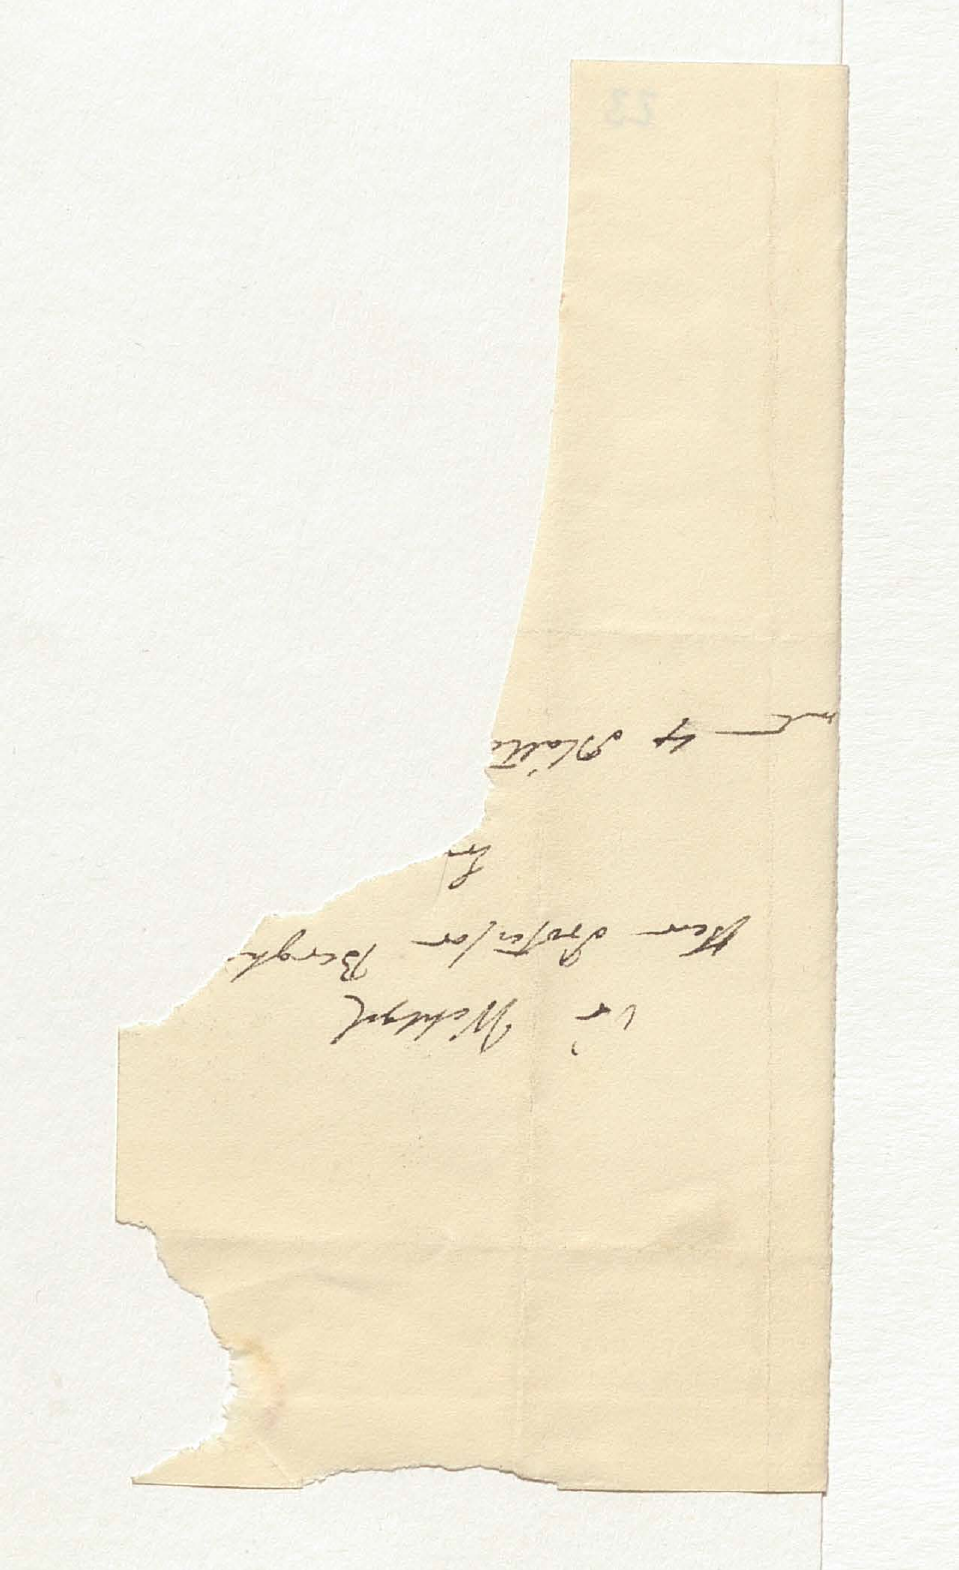 Wohlgeb
Herrn Professor Bergh
in
4 Blätte